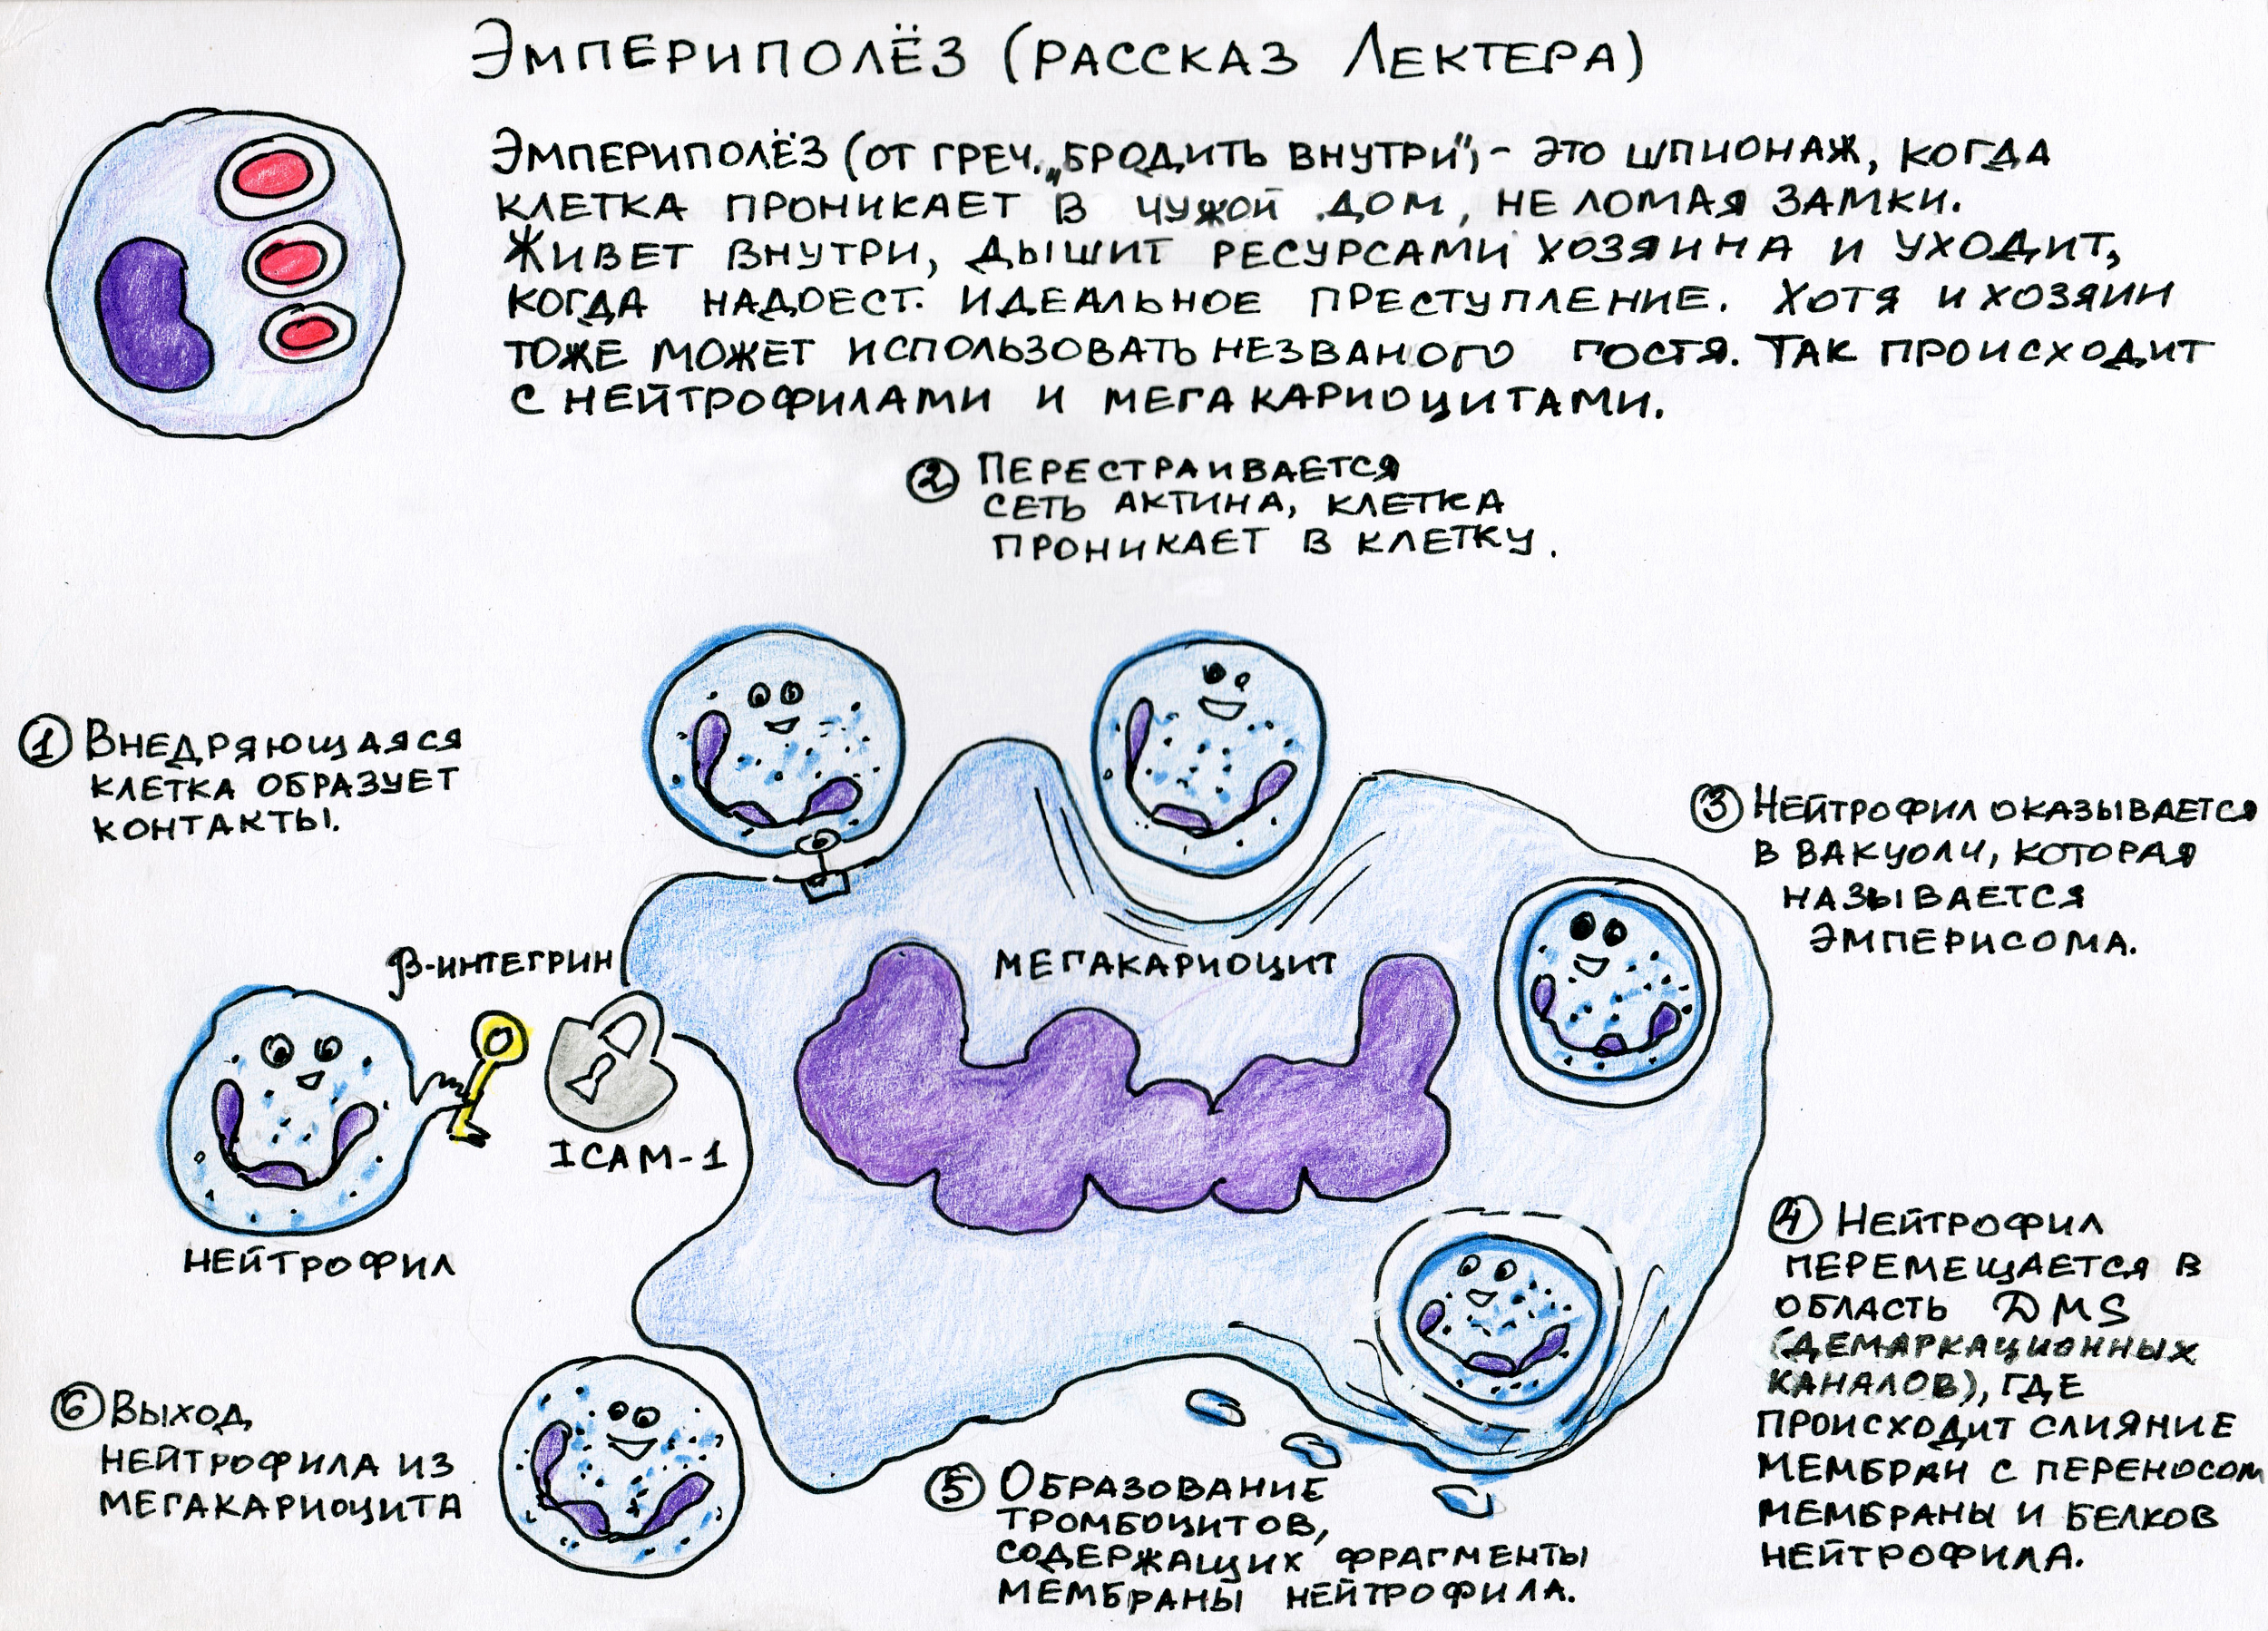 Эмпериполёз (рассказ Лектера)
Эмпериполёз (от греч. „бродить внутри") - это шпионаж, когда
клетка проникает в чужой дом, не ломая замки.
Живет внутри, дышит ресурсами хозяина и уходит,
когда надоест. Идеальное преступление. Хотя и хозяин
тоже может использовать незваного гостя. Так происходит
с нейтрофилами и мегакариоцитами.
2 Перестраивается
сеть актина, клетка
проникает в клетку.
1 Внедряющаяся
клетка образует
контакты.
3 Нейтрофил оказывается
в вакуоли, которая
называется
эмперисома.
β-интегрин
мегакариоцит
ICAM-1
нейтрофил
4 Нейтрофил
перемещается в
область DMS
(демаркационных
каналов), где
происходит слияние
мембран с переносом
мембраны и белков
нейтрофила.
5 Образование
тромбоцитов,
содержащих фрагменты
мембраны нейтрофила.
6 Выход
нейтрофила из
мегакариоцита